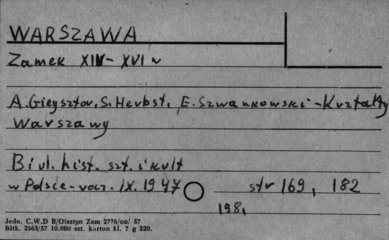 WARSZAWA
Zamek XIV - XVI w
A. Gieysztor, S. Herbst, E. Szwankowski - Kształty
Warszawy
Biul. hist. szt. i kult
w Polsce - rocz. IX. 1947 str 169, 182
198,
Jedn. C.W.D B/Olsztyn Zam 2776/on/ 57
Bltk. 2563/57 10.000 szt. karton kl. 7 g 220.